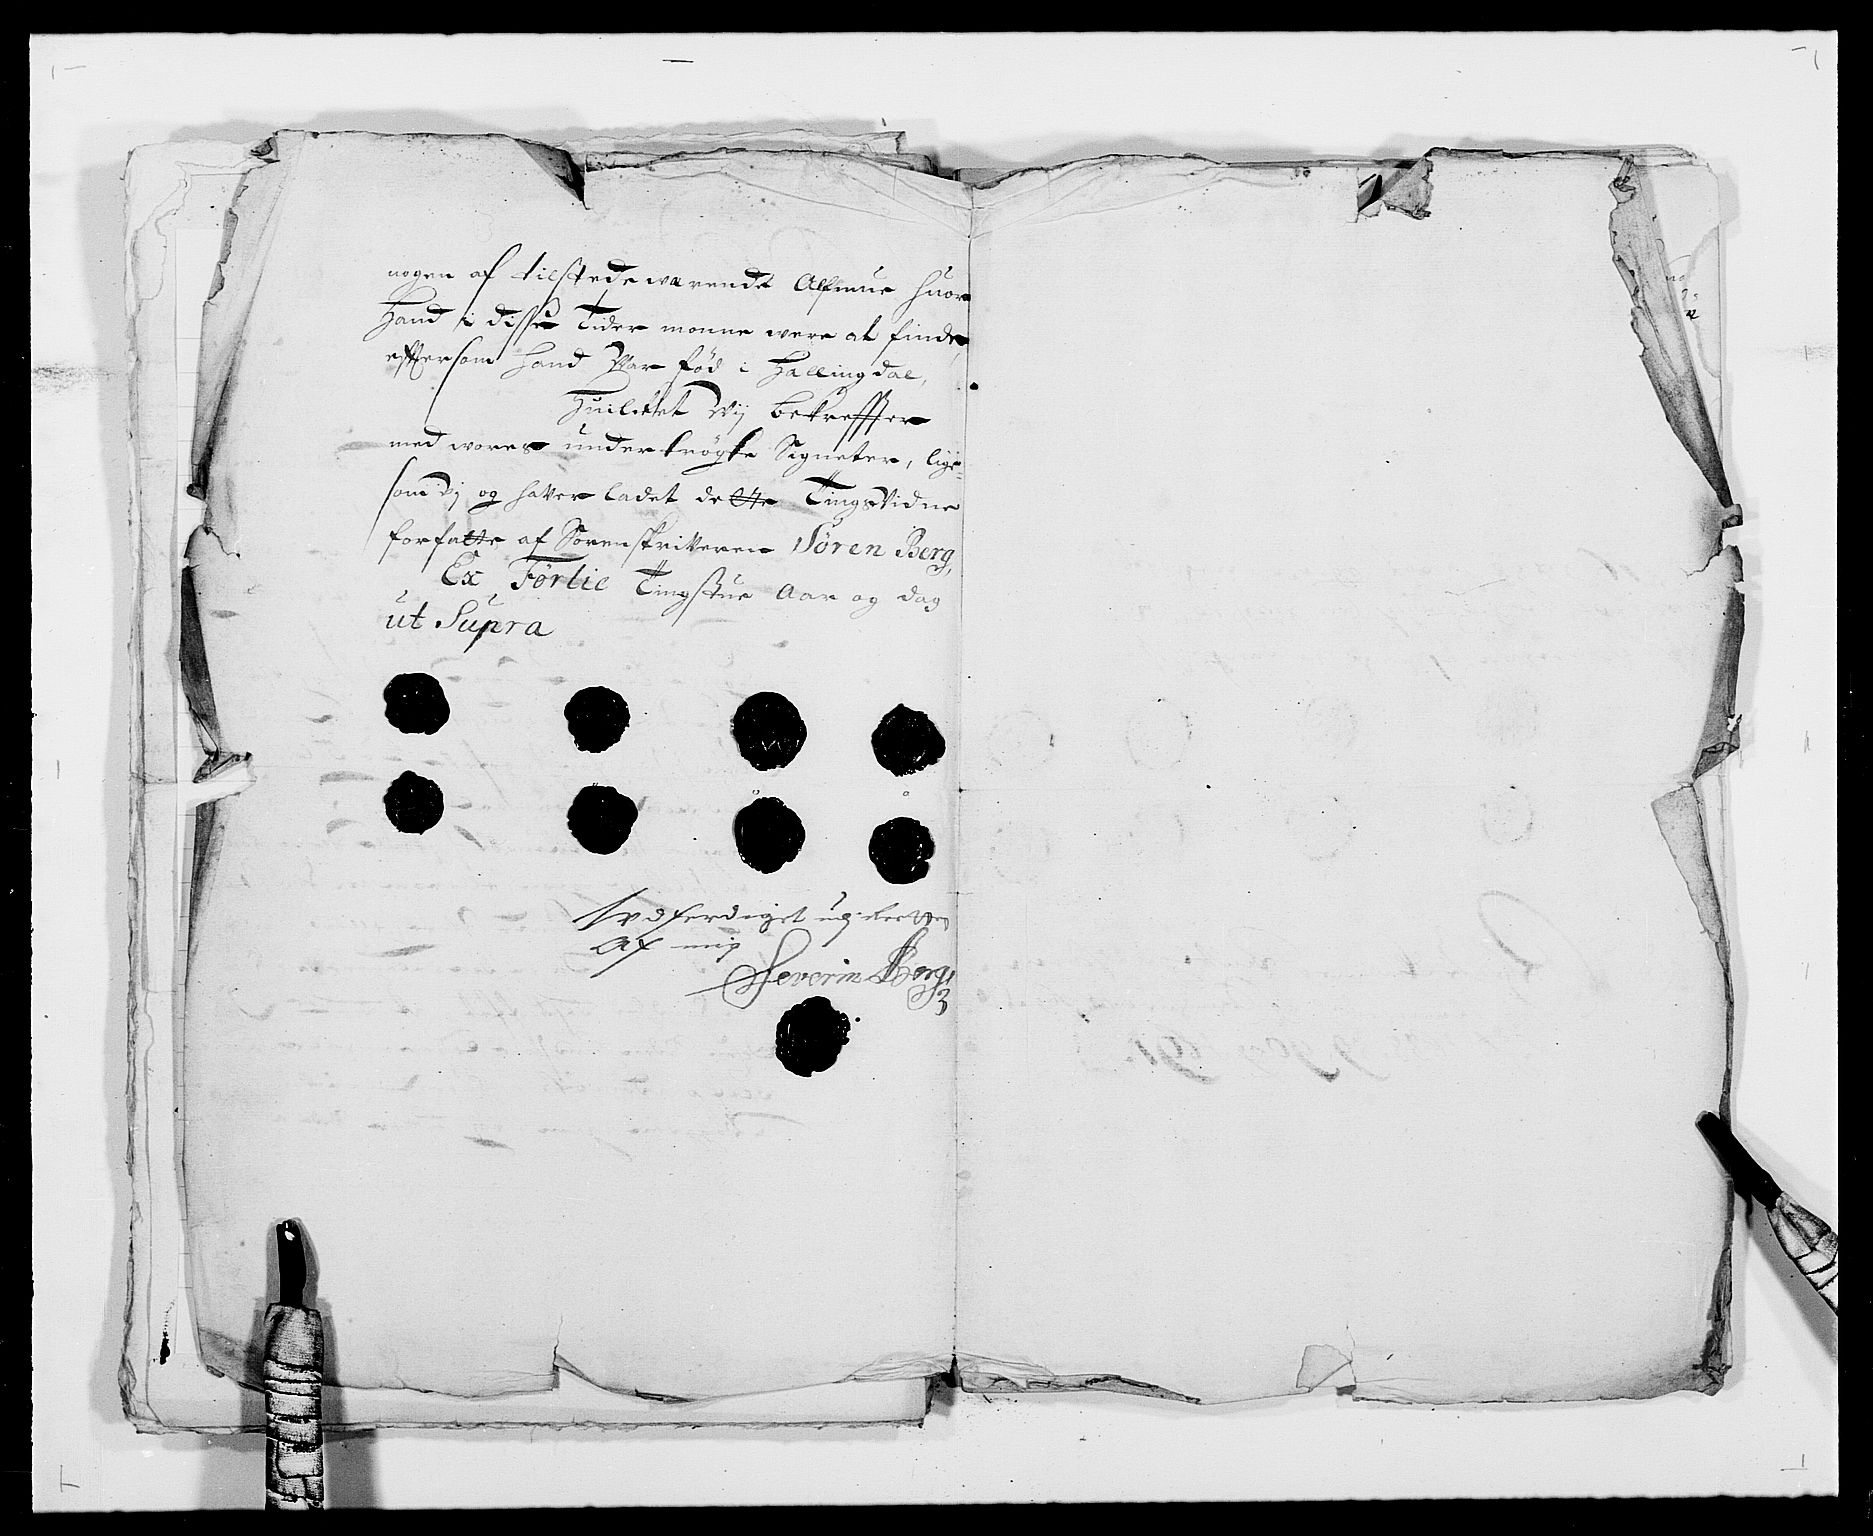 nogen af tilstedewærende Alfmue huor
Hand i disse Tider monne were at finde,
efftersom hand Var fød i Hallingdal,
Huilcket Wij bekreffter
med wores undertrögte Signeter, lige-
som vj og hafver ladet dette TingsVidne
forfatte af Sorenskrifveren Sören Berg,
Ex Førlie Tingstue Aar og dag
ut Supra
af mig
Severin Berg